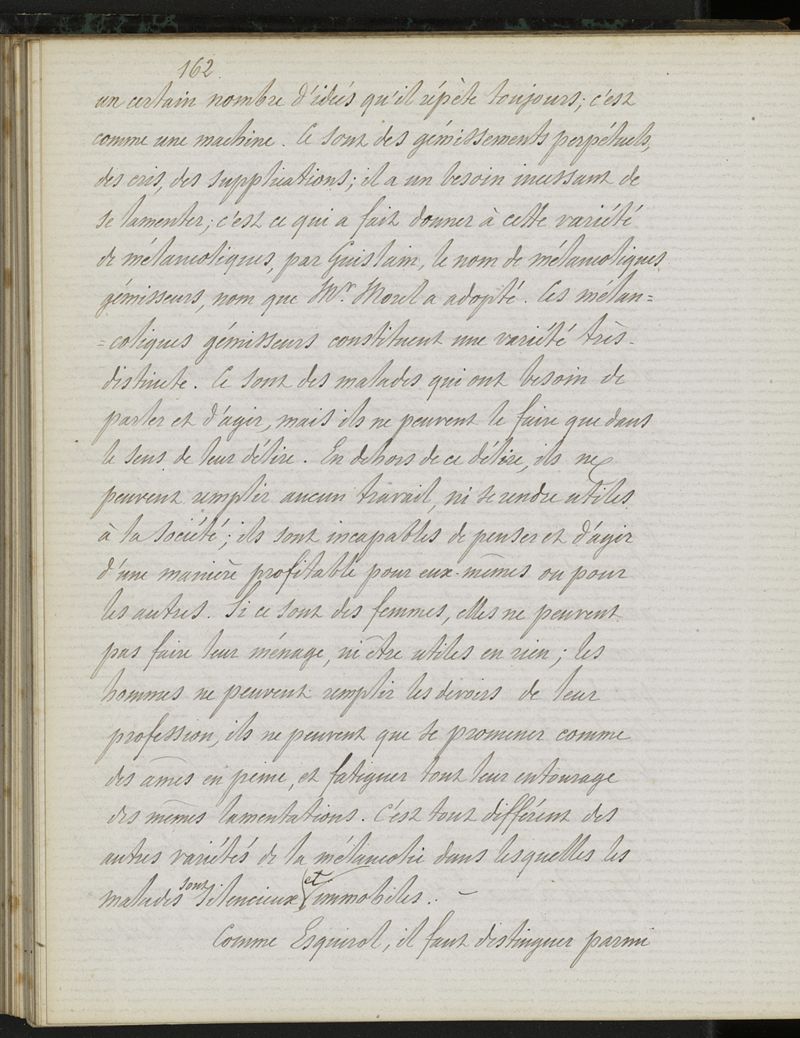 162
un certain nombre d'idées qu'il répète toujours; c'est
comme une machine. Ce sont des gémissements perpétuels,
des cris, des supplications; il a un besoin incessant de
se lamenter; c'est ce qui a fait donner à cette variété
de mélancoliques, par Guislain, le nom de mélancoliques
gémisseurs, nom que Mr. Morel a adopté. Ces mélan=
=coliques gémisseurs constituent une variété très-
distincte. Ce sont des malades qui ont besoin de
parler et d'agir, mais ils ne peuvent le faire que dans
le sens de leur délire. En dehors de ce délire, ils ne
peuvent remplir aucun travail, ni se rendre utiles
à la société; ils sont incapables de penser et d'agir
d'une manière profitable pour eux-mêmes ou pour
les autres. Si ce sont des femmes, elles ne peuvent
pas faire leur ménage, ni être utiles en rien; les
hommes ne peuvent remplir les devoirs de leur
profession, ils ne peuvent que se promener comme
des âmes en peine, et fatiguer tout leur entourage
des mêmes lamentations. C'est tout différent des
autres variétés de la mélancolie dans lesquelles les
malades sont silencieux et immobiles. –
Comme Esquirol, il faut distinguer parmi